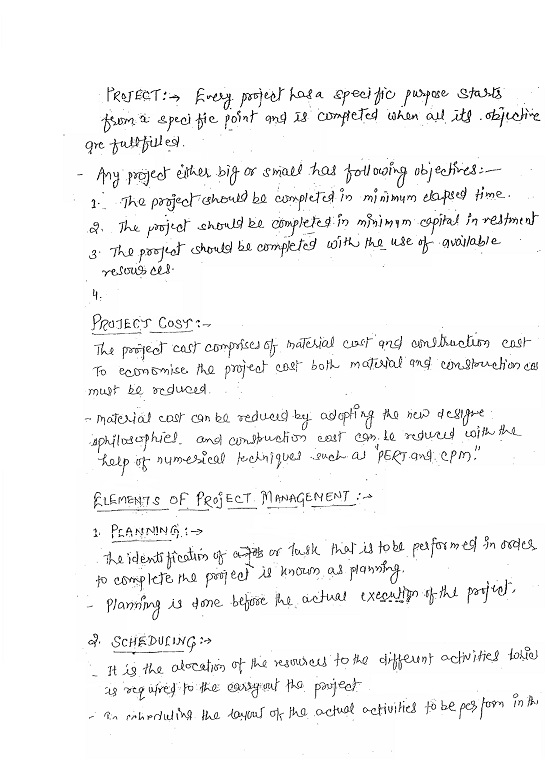 PROJECT:→ Every project has a specific purpose starts
from a specific point and is completed when all its objective
are fullfilled.
- Any project either big or small has following objectives:—
1. The project should be completed in minimum elapsed time.
2. The project should be completed in minimum capital investment
3. The project should be completed with the use of available
resources.
4.
PROJECT COST:-
The project cost comprises of material cost and construction cost
To economise the project cost both material and construction cos
must be reduced.
- Material cost can be reduced by adopting the new designe
philosophies and construction cost can be reduced with the
help of numerical techniques such as "PERT and CPM."
ELEMENTS OF PROJECT MANAGEMENT:→
1. PLANNING:→
The identification of a job or Task that is to be performed in order
to complete the project is known as planning.
- Planning is done before the actual execution of the project.
2. SCHEDULING:→
- It is the alocation of the resources to the different activities
is required to the carryout the project
- In scheduling the layout of the actual activities to be perform in th